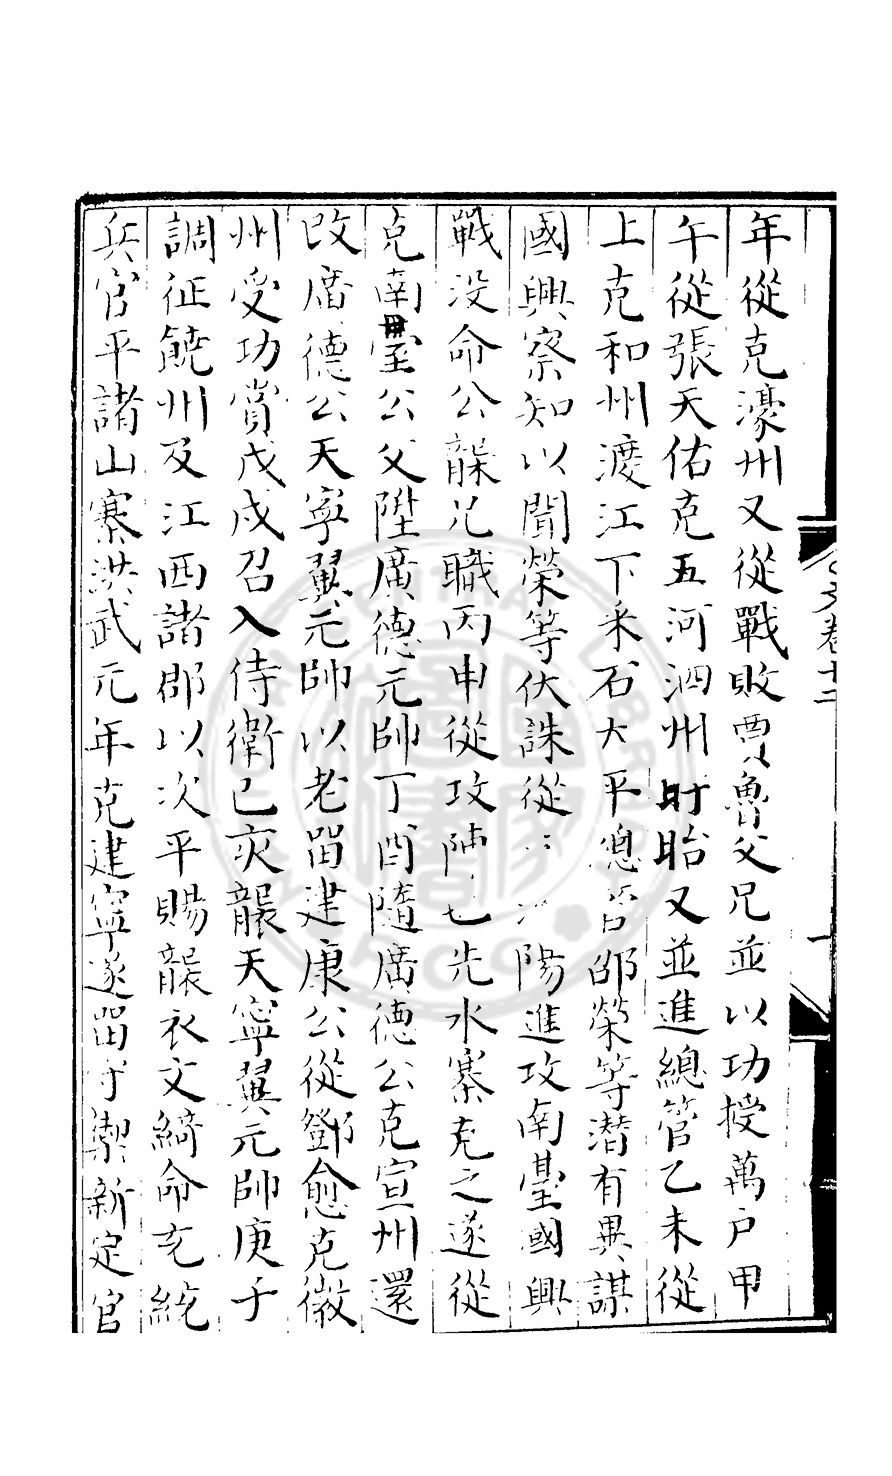 年從克濠州又從戰敗賈魯父兄並以功授萬户甲
午從張天佑克五河泗州盱眙又並進總管乙未從
上克和州渡江下采石太平總管邵榮等潛有異謀
國興察知以聞榮等伏誅從陽進攻南臺國興
戰没命公襲兄職丙申從攻陳也先水寨克之遂從
克南臺公父陞廣德元帥丁酉隨廣德公克宣州還
改廣德公天寧翼元帥以老留建康公從鄧愈克徽
州受功賞戊戌召入侍衛己亥襲天寧翼元帥庚子
調征饒州及江西諸郡以次平賜襲衣文綺命充統
兵官平諸山寨洪武元年克建寧遂留守禦新定官
文卷十二
一